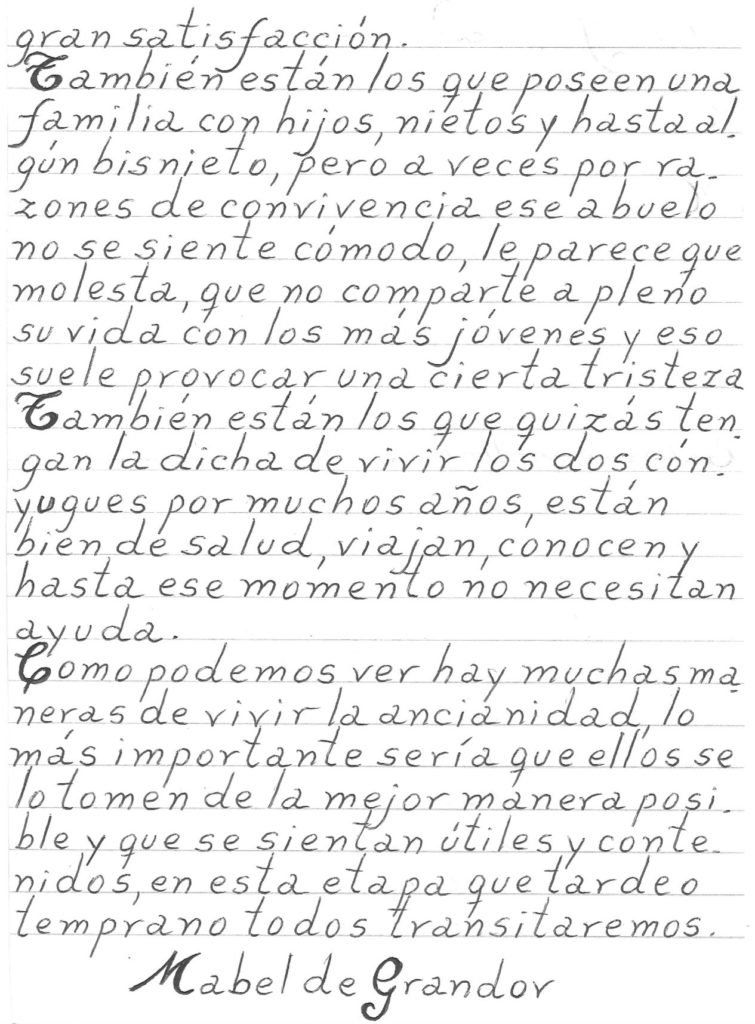 gran satisfacción.
También están los que poseen una
familia con hijos, nietos y hasta al-
gún bisnieto, pero a veces por ra-
zones de convivencia ese abuelo
no se siente cómodo, le parece que
molesta, que no comparte a pleno
su vida con los más jóvenes y eso
suele provocar una cierta tristeza
También están los que quizás ten-
gan la dicha de vivir los dos cón-
yugues por muchos años, están
bien de salud, viajan, conocen y
hasta ese momento no necesitan
ayuda.
Como podemos ver hay muchas ma-
neras de vivir la ancianidad, lo
más importante sería que ellos se
lo tomen de la mejor manera posi-
ble y que se sientan útiles y conte-
nidos, en esta etapa que tarde o
temprano todos transitaremos.
Mabel de Grandov